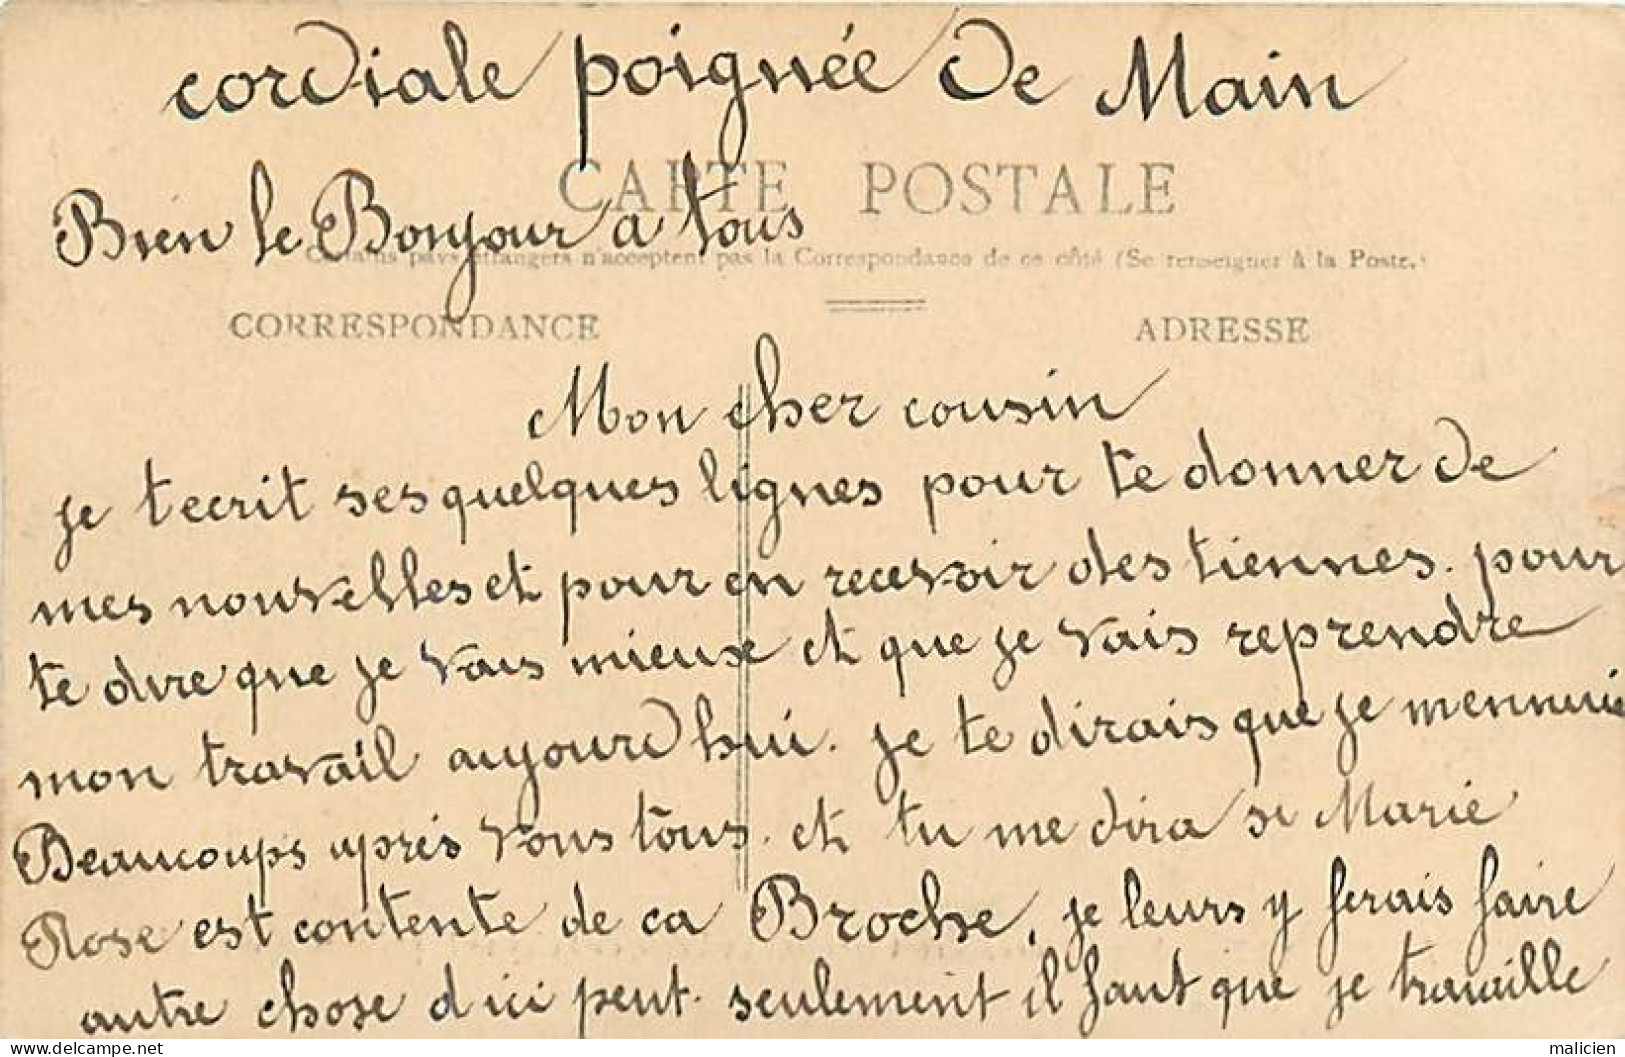 cordiale poignée de Main
CARTE POSTALE
Bien le Bonjour a tous
Certains pays étrangers n'acceptent pas la Correspondance de ce côté (Se renseigner à la Poste.)
CORRESPONDANCE ADRESSE
Mon cher cousin
je tecrit ses quelques lignes pour te donner de
mes nouvelles et pour en recevoir des tiennes. pour
te dire que je vais mieux et que je vais reprendre
mon travail aujourd hui. je te dirais que je mennuie
Beaucoups après vous tous. et tu me dira si Marie
Rose est contente de ca Broche, je leurs y ferais faire
autre chose d ici peut. seulement il faut que je travaille
delcampe.net
malicien